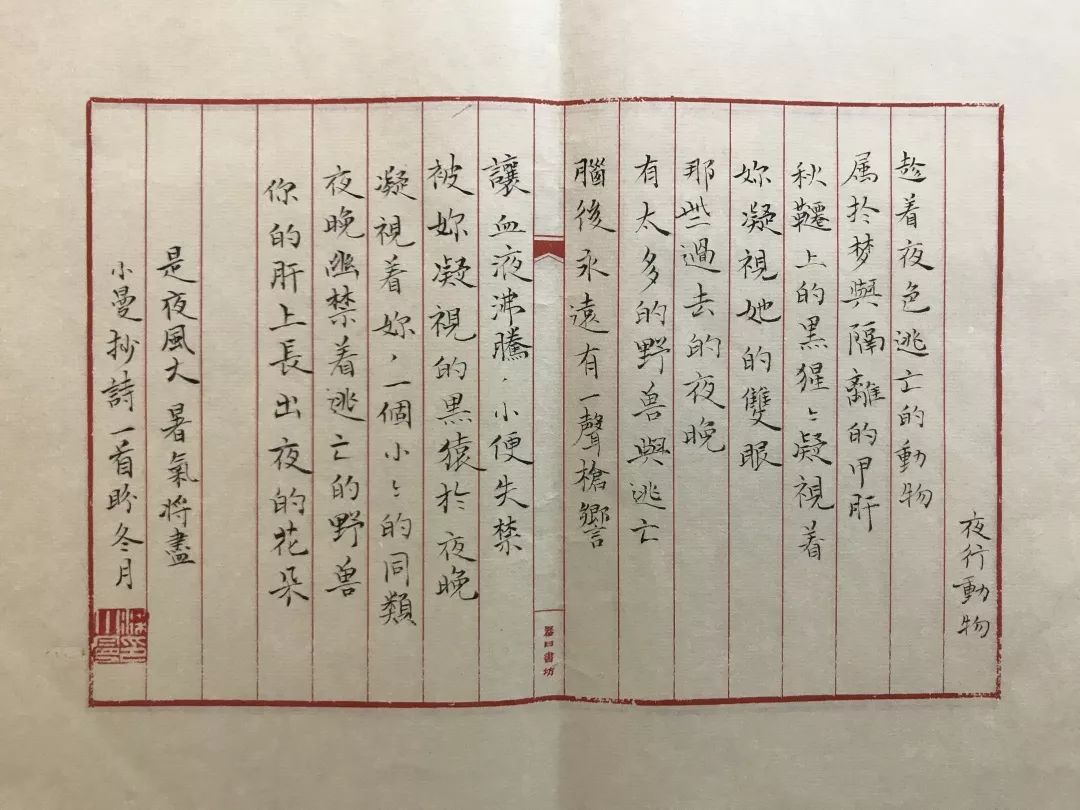 夜行動物
趁着夜色逃亡的動物
属於梦與隔離的甲肝
秋韆上的黑猩〻凝視着
妳凝視她的雙眼
那些過去的夜晚
有太多的野兽與逃亡
腦後永遠有一聲槍響
讓血液沸騰，小便失禁
被妳凝視的黑猿於夜晚
凝視着妳，一個小〻的同類
夜晚幽禁着逃亡的野兽
你的肝上長出夜的花朵
是夜風大 暑氣將盡
小曼抄詩一首盼冬月
書坊